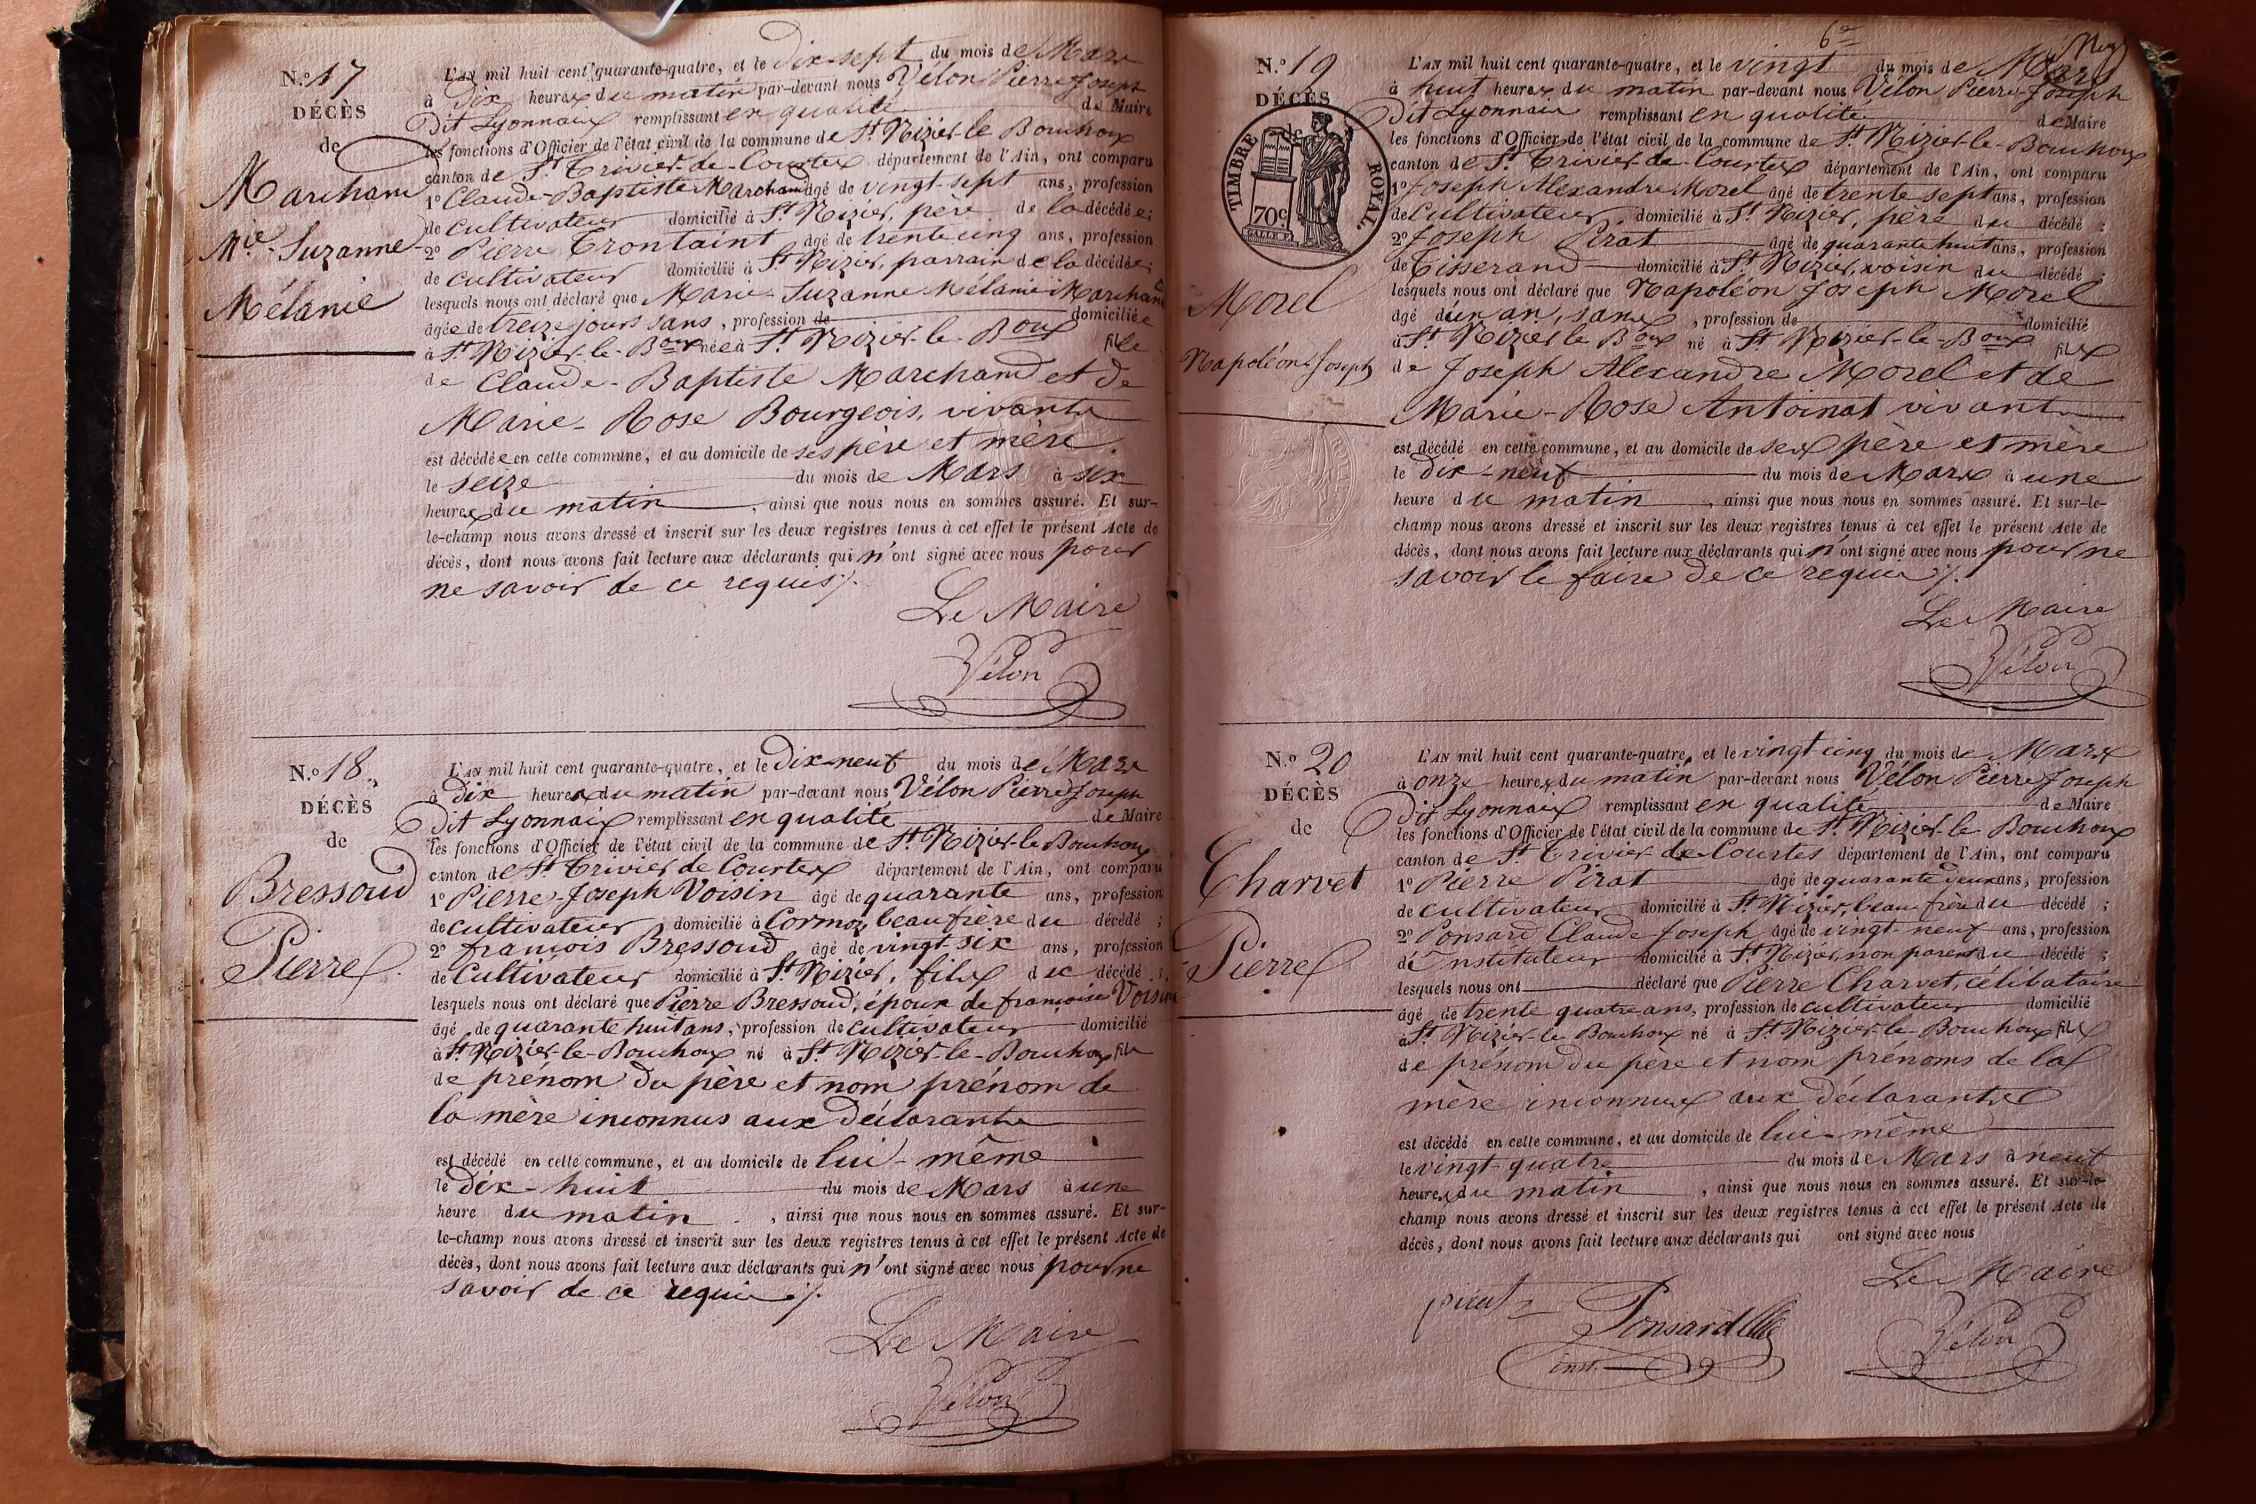 N.o 17
DÉCÈS
de
Marchand
Mie Suzanne
Mélanie
L'AN mil huit cent quarante-quatre, et le dix-sept du mois de Mars
à dix heures du matin par-devant nous Vélon Pierre Joseph
dit Lyonnais remplissant en qualité de Maire
les fonctions d'Officier de l'état civil de la commune de St Nizier-le-Bouchoux
canton de St Trivier-de-Courtes département de l'Ain, ont comparu
1o Claude-Baptiste Marchand âgé de vingt-sept ans, profession
de cultivateur domicilié à St Nizier, père de la décédée;
2o Pierre Trontaint âgé de trente cinq ans, profession
de cultivateur domicilié à St Nizier, parrain de la décédée;
lesquels nous ont déclaré que Marie-Suzanne Mélanie Marchand
âgée de treize jours sans, profession de domiciliée
à St Nizier-le-Boux née à St Nizier-le-Boux fille
de Claude-Baptiste Marchand et de
Marie-Rose Bourgeois, vivants
est décédée en cette commune, et au domicile de ses père et mère
le seize du mois de Mars à six
heures du matin, ainsi que nous nous en sommes assuré. Et sur-
le-champ nous avons dressé et inscrit sur les deux registres tenus à cet effet le présent Acte de
décès, dont nous avons fait lecture aux déclarants qui n'ont signé avec nous pour
ne savoir de ce requis ./.
Le Maire
Vélon
N.o 18
DÉCÈS
de
Bressoud
Pierre
L'AN mil huit cent quarante-quatre, et le dix-neuf du mois de Mars
à dix heures du matin par-devant nous Vélon Pierre Joseph
dit Lyonnais remplissant en qualité de Maire
les fonctions d'Officier de l'état civil de la commune de St Nizier-le-Bouchoux
canton de St Trivier de Courtes département de l'Ain, ont comparu
1o Pierre-Joseph Voisin âgé de quarante ans, profession
de cultivateur domicilié à Cormoz, beau frère du décédé;
2o françois Bressoud âgé de vingt six ans, profession
de Cultivateur domicilié à St Nizier, fils du décédé;
lesquels nous ont déclaré que Pierre Bressoud, époux de françoise Voisin
âgé de quarante huit ans, profession de cultivateur domicilié
à St Nizier-le-Bouchoux né à St Nizier-le-Bouchoux fils
de prénom du père et nom prénom de
la mère inconnus aux déclarants
est décédé en cette commune, et au domicile de lui-même
le dix-huit du mois de Mars à une
heure du matin, ainsi que nous nous en sommes assuré. Et sur-
le-champ nous avons dressé et inscrit sur les deux registres tenus à cet effet le présent Acte de
décès, dont nous avons fait lecture aux déclarants qui n'ont signé avec nous pour ne
savoir de ce requis ./.
Le Maire
Vélon
6e
N.o 19
DÉCÈS
de
TIMBRE ROYAL.
70c
Morel
Napoléon-Joseph
L'AN mil huit cent quarante-quatre, et le vingt du mois de Mars
à huit heures du matin par-devant nous Vélon Pierre-Joseph
dit Lyonnais remplissant en qualité de Maire
les fonctions d'Officier de l'état civil de la commune de St Nizier-le-Bouchoux
canton de St Trivier de Courtes département de l'Ain, ont comparu
1o Joseph Alexandre Morel âgé de trente sept ans, profession
de Cultivateur domicilié à St Nizier, père du décédé;
2o Joseph Pirat âgé de quarante huit ans, profession
de Tisserand domicilié à St Nizier, voisin du décédé;
lesquels nous ont déclaré que Napoléon Joseph Morel
âgé d'un an, sans, profession de domicilié
à St Nizier le Boux né à St Nizier-le-Boux fils
de Joseph Alexandre Morel et de
Marie-Rose Antoinat vivants
est décédé en cette commune, et au domicile de ses père et mère
le dix-neuf du mois de Mars à une
heure du matin, ainsi que nous nous en sommes assuré. Et sur-le-
champ nous avons dressé et inscrit sur les deux registres tenus à cet effet le présent Acte de
décès, dont nous avons fait lecture aux déclarants qui n'ont signé avec nous pour ne
savoir le faire de ce requis ./.
Le Maire
Vélon
N.o 20
DÉCÈS
de
Charvet
Pierre
L'AN mil huit cent quarante-quatre, et le vingt-cinq du mois de Mars
à onze heures du matin par-devant nous Vélon Pierre Joseph
dit Lyonnais remplissant en qualité de Maire
les fonctions d'Officier de l'état civil de la commune de St Nizier-le-Bouchoux
canton de St Trivier-de-Courtes département de l'Ain, ont comparu
1o Pierre Pirat âgé de quarante deux ans, profession
de cultivateur domicilié à St Nizier, beau frère du décédé;
2o Ponsard Claude Joseph âgé de vingt-neuf ans, profession
d'Instituteur domicilié à St Nizier, non parent du décédé;
lesquels nous ont déclaré que Pierre Charvet, célibataire
âgé de trente quatre ans, profession de cultivateur domicilié
à St Nizier-le-Bouchoux né à St Nizier-le-Bouchoux fils
de prénom du père et nom prénoms de la
mère inconnus aux déclarants
est décédé en cette commune, et au domicile de lui-même
le vingt-quatre du mois de Mars à neuf
heures du matin, ainsi que nous nous en sommes assuré. Et sur-le-
champ nous avons dressé et inscrit sur les deux registres tenus à cet effet le présent Acte de
décès, dont nous avons fait lecture aux déclarants qui ont signé avec nous
Le Maire
pirat Ponsard
inst.
Vélon